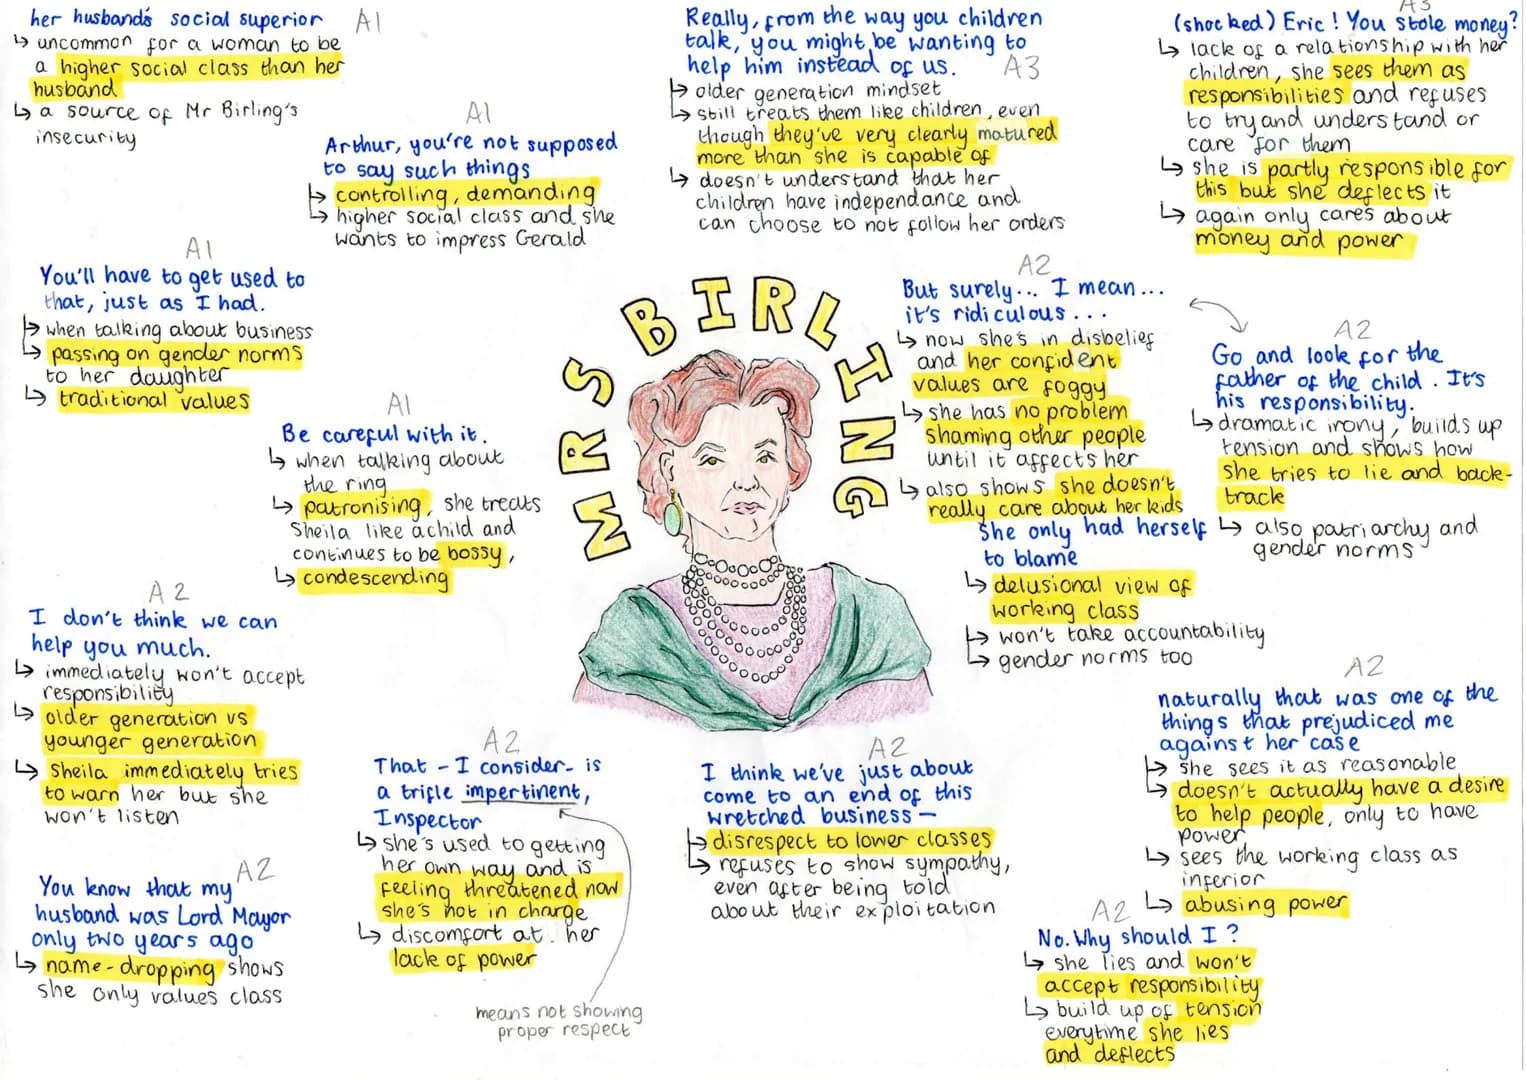 her husband's social superior A1
↳ uncommon for a woman to be
a higher social class than her
husband
↳ a source of Mr Birling's
insecurity
A1
Arthur, you're not supposed
to say such things
↳ controlling, demanding
↳ higher social class and she
wants to impress Gerald
A1
You'll have to get used to
that, just as I had.
↳ when talking about business
↳ passing on gender norms
to her daughter
↳ traditional values
A1
Be careful with it.
↳ when talking about
the ring
↳ patronising, she treats
Sheila like a child and
continues to be bossy,
↳ condescending
A2
I don't think we can
help you much.
↳ immediately won't accept
responsibility
↳ older generation vs
younger generation
↳ Sheila immediately tries
to warn her but she
won't listen
A2
You know that my
husband was Lord Mayor
only two years ago
↳ name-dropping shows
she only values class
A2
That - I consider - is
a trifle impertinent,
Inspector
↳ she's used to getting
her own way and is
feeling threatened now
she's not in charge
↳ discomfort at her
lack of power
means not showing
proper respect
MRS BIRLING
Really, from the way you children
talk, you might be wanting to
help him instead of us. A3
↳ older generation mindset
↳ still treats them like children, even
though they've very clearly matured
more than she is capable of
↳ doesn't understand that her
children have independence and
can choose to not follow her orders
A2
I think we've just about
come to an end of this
wretched business —
↳ disrespect to lower classes
↳ refuses to show sympathy,
even after being told
about their exploitation
A3
(shocked) Eric! You stole money?
↳ lack of a relationship with her
children, she sees them as
responsibilities and refuses
to try and understand or
care for them
↳ she is partly responsible for
this but she deflects it
↳ again only cares about
money and power
A2
But surely... I mean...
it's ridiculous...
↳ now she's in disbelief
and her confident
values are foggy
↳ she has no problem
shaming other people
until it affects her
↳ also shows she doesn't
really care about her kids
A2
Go and look for the
father of the child. It's
his responsibility.
↳ dramatic irony, builds up
tension and shows how
she tries to lie and back-
track
↳ also patriarchy and
gender norms
She only had herself
to blame
↳ delusional view of
working class
↳ won't take accountability
↳ gender norms too
A2
naturally that was one of the
things that prejudiced me
against her case
↳ she sees it as reasonable
↳ doesn't actually have a desire
to help people, only to have
power
↳ sees the working class as
inferior
↳ abusing power
A2
No. Why should I?
↳ she lies and won't
accept responsibility
↳ build up of tension
everytime she lies
and deflects